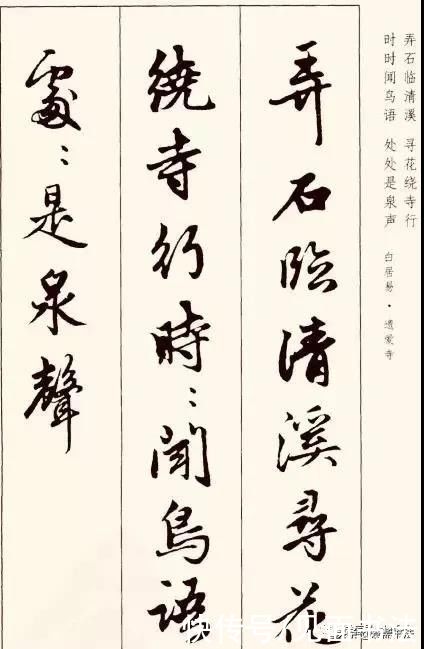 弄石临清溪 寻花绕寺行
时时闻鸟语 处处是泉声
白居易·遗爱寺
弄石臨清溪尋花
繞寺行時：聞鳥語
處：是泉聲
快传号